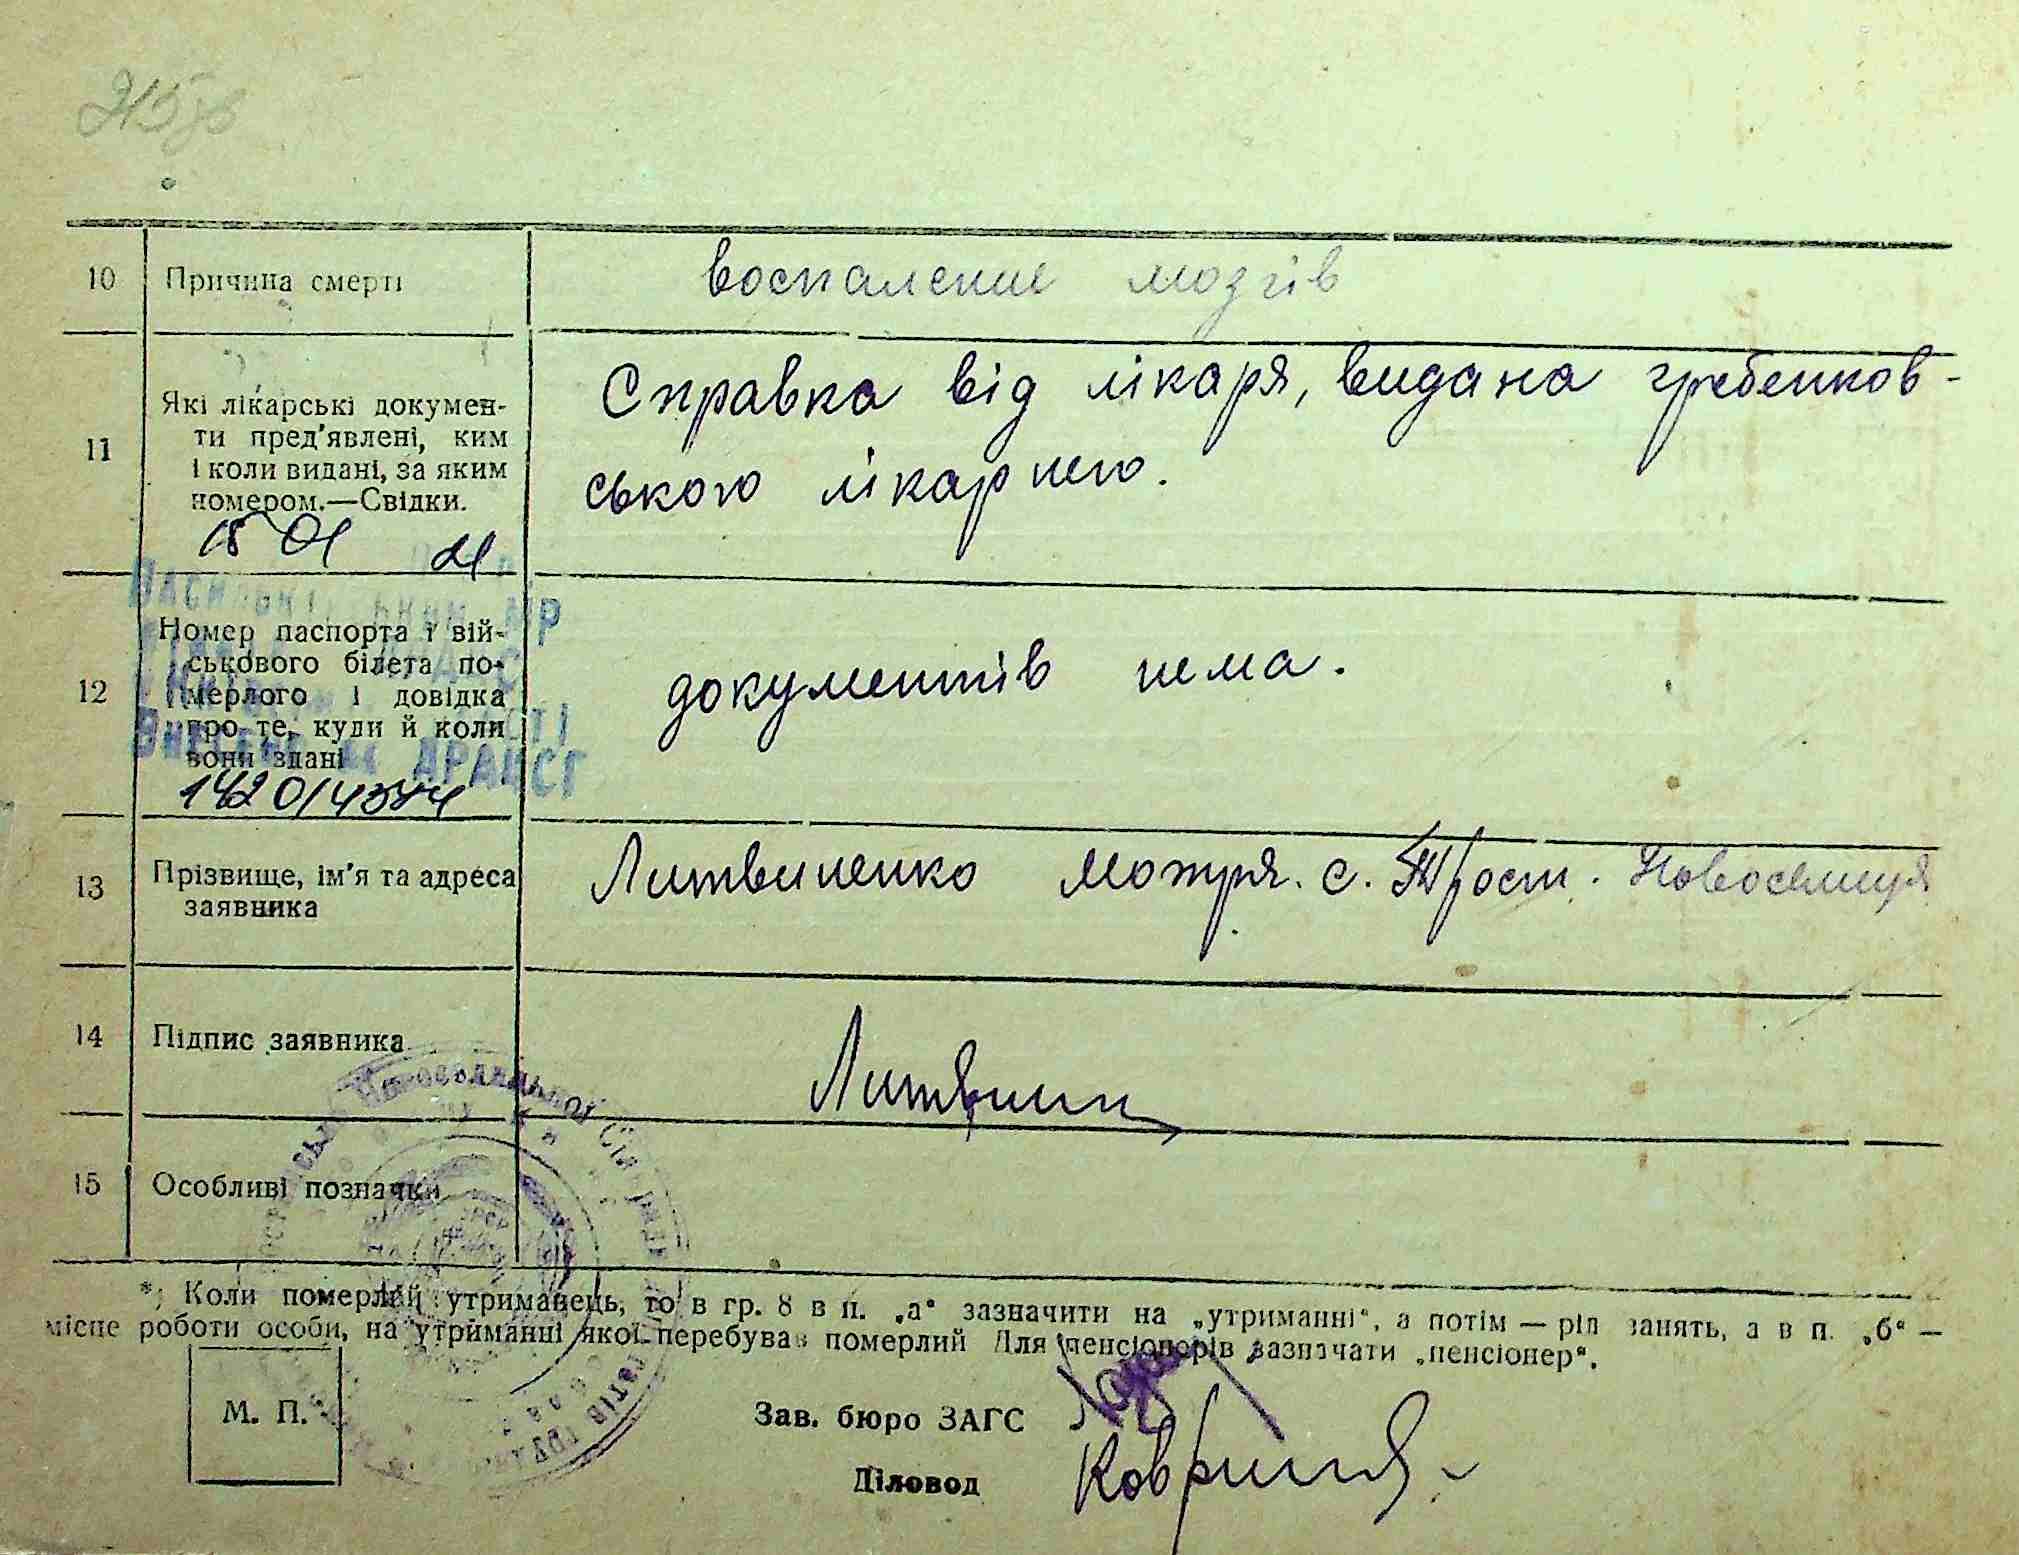 10 Причина смерти воспаление мозгів
11 Які лікарські докумен-
ти пред'явлені, ким
і коли видані, за яким
номером.—Свідки.
Справка від лікаря, видана гребенков-
ською лікарнею.
15 01 21
12 Номер паспорта і вій-
ського білета по-
мерлого і довідка
про те, куди й коли
вони здані
документів нема.
1420/4344
13 Прізвище, ім'я та адреса
заявника
Литвиненко Мотря. с. Трост. Новоселиця
14 Підпис заявника
Литвин
15 Особливі позначки
*) Коли померлий утриманець, то в гр. 8 в п. „а" зазначити на „утриманні", а потім — рід занять, а в п. „б" —
місце роботи особи, на утриманні якої перебував померлий Для пенсіонерів зазначати „пенсіонер".
М. П.
Зав. бюро ЗАГС
Діловод